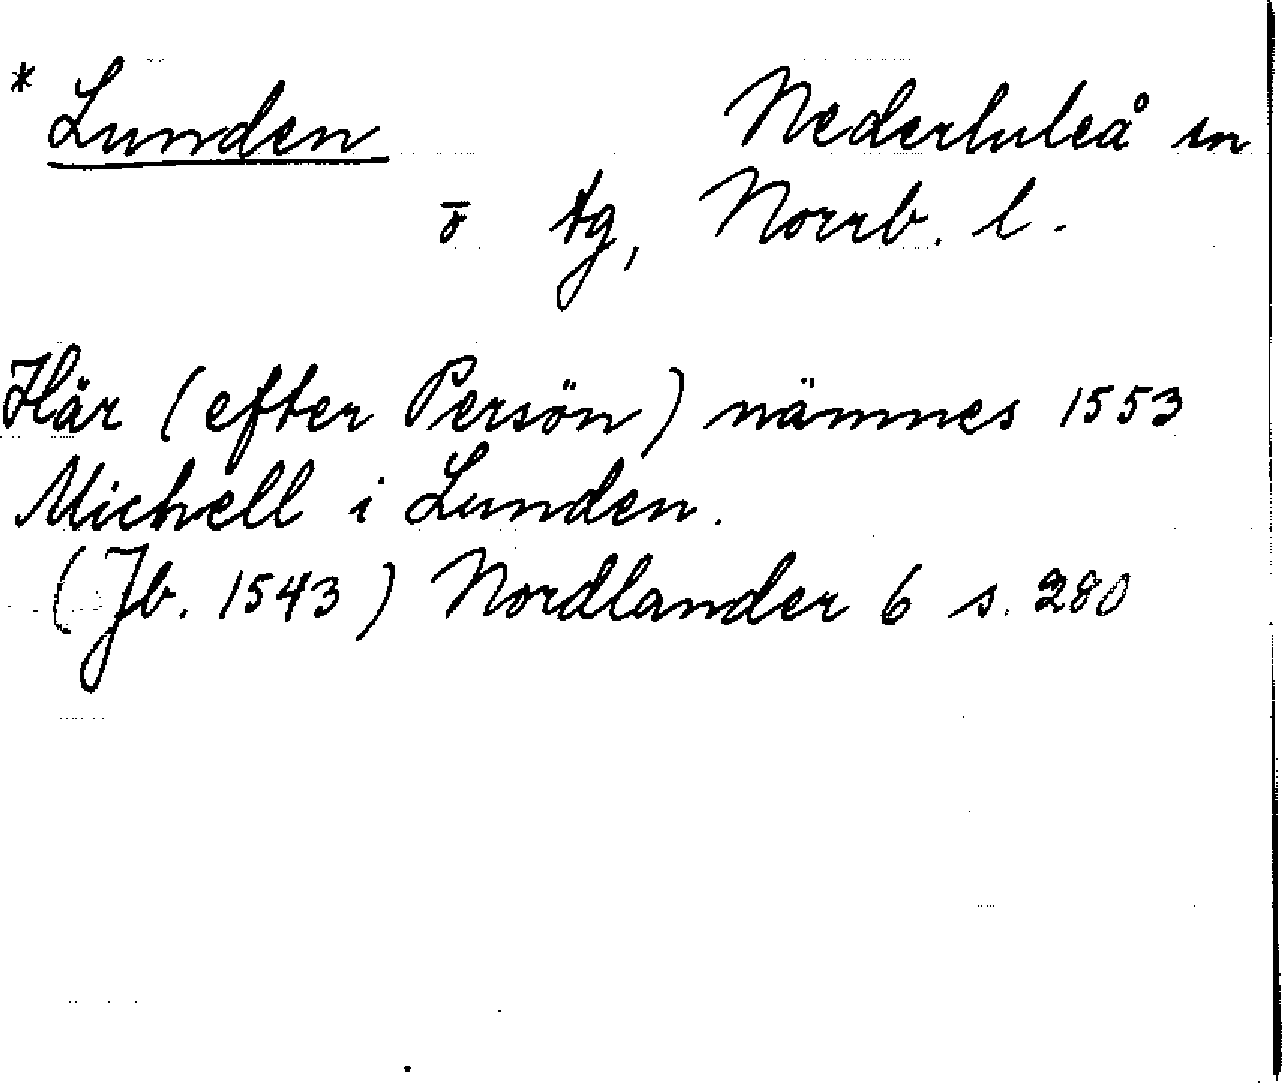 * Lunden Nederluleå sn
ō tg, Norrb. l.
Här (efter Persön) nämnes 1553
Michell i Lunden.
(Jb. 1543) Nordlander 6 s. 280